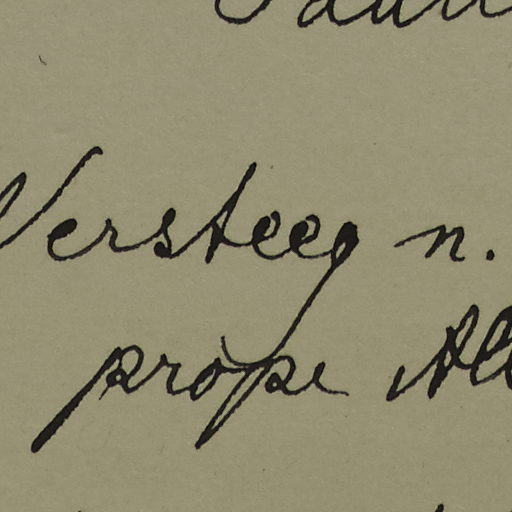 Versteeg n.
prope